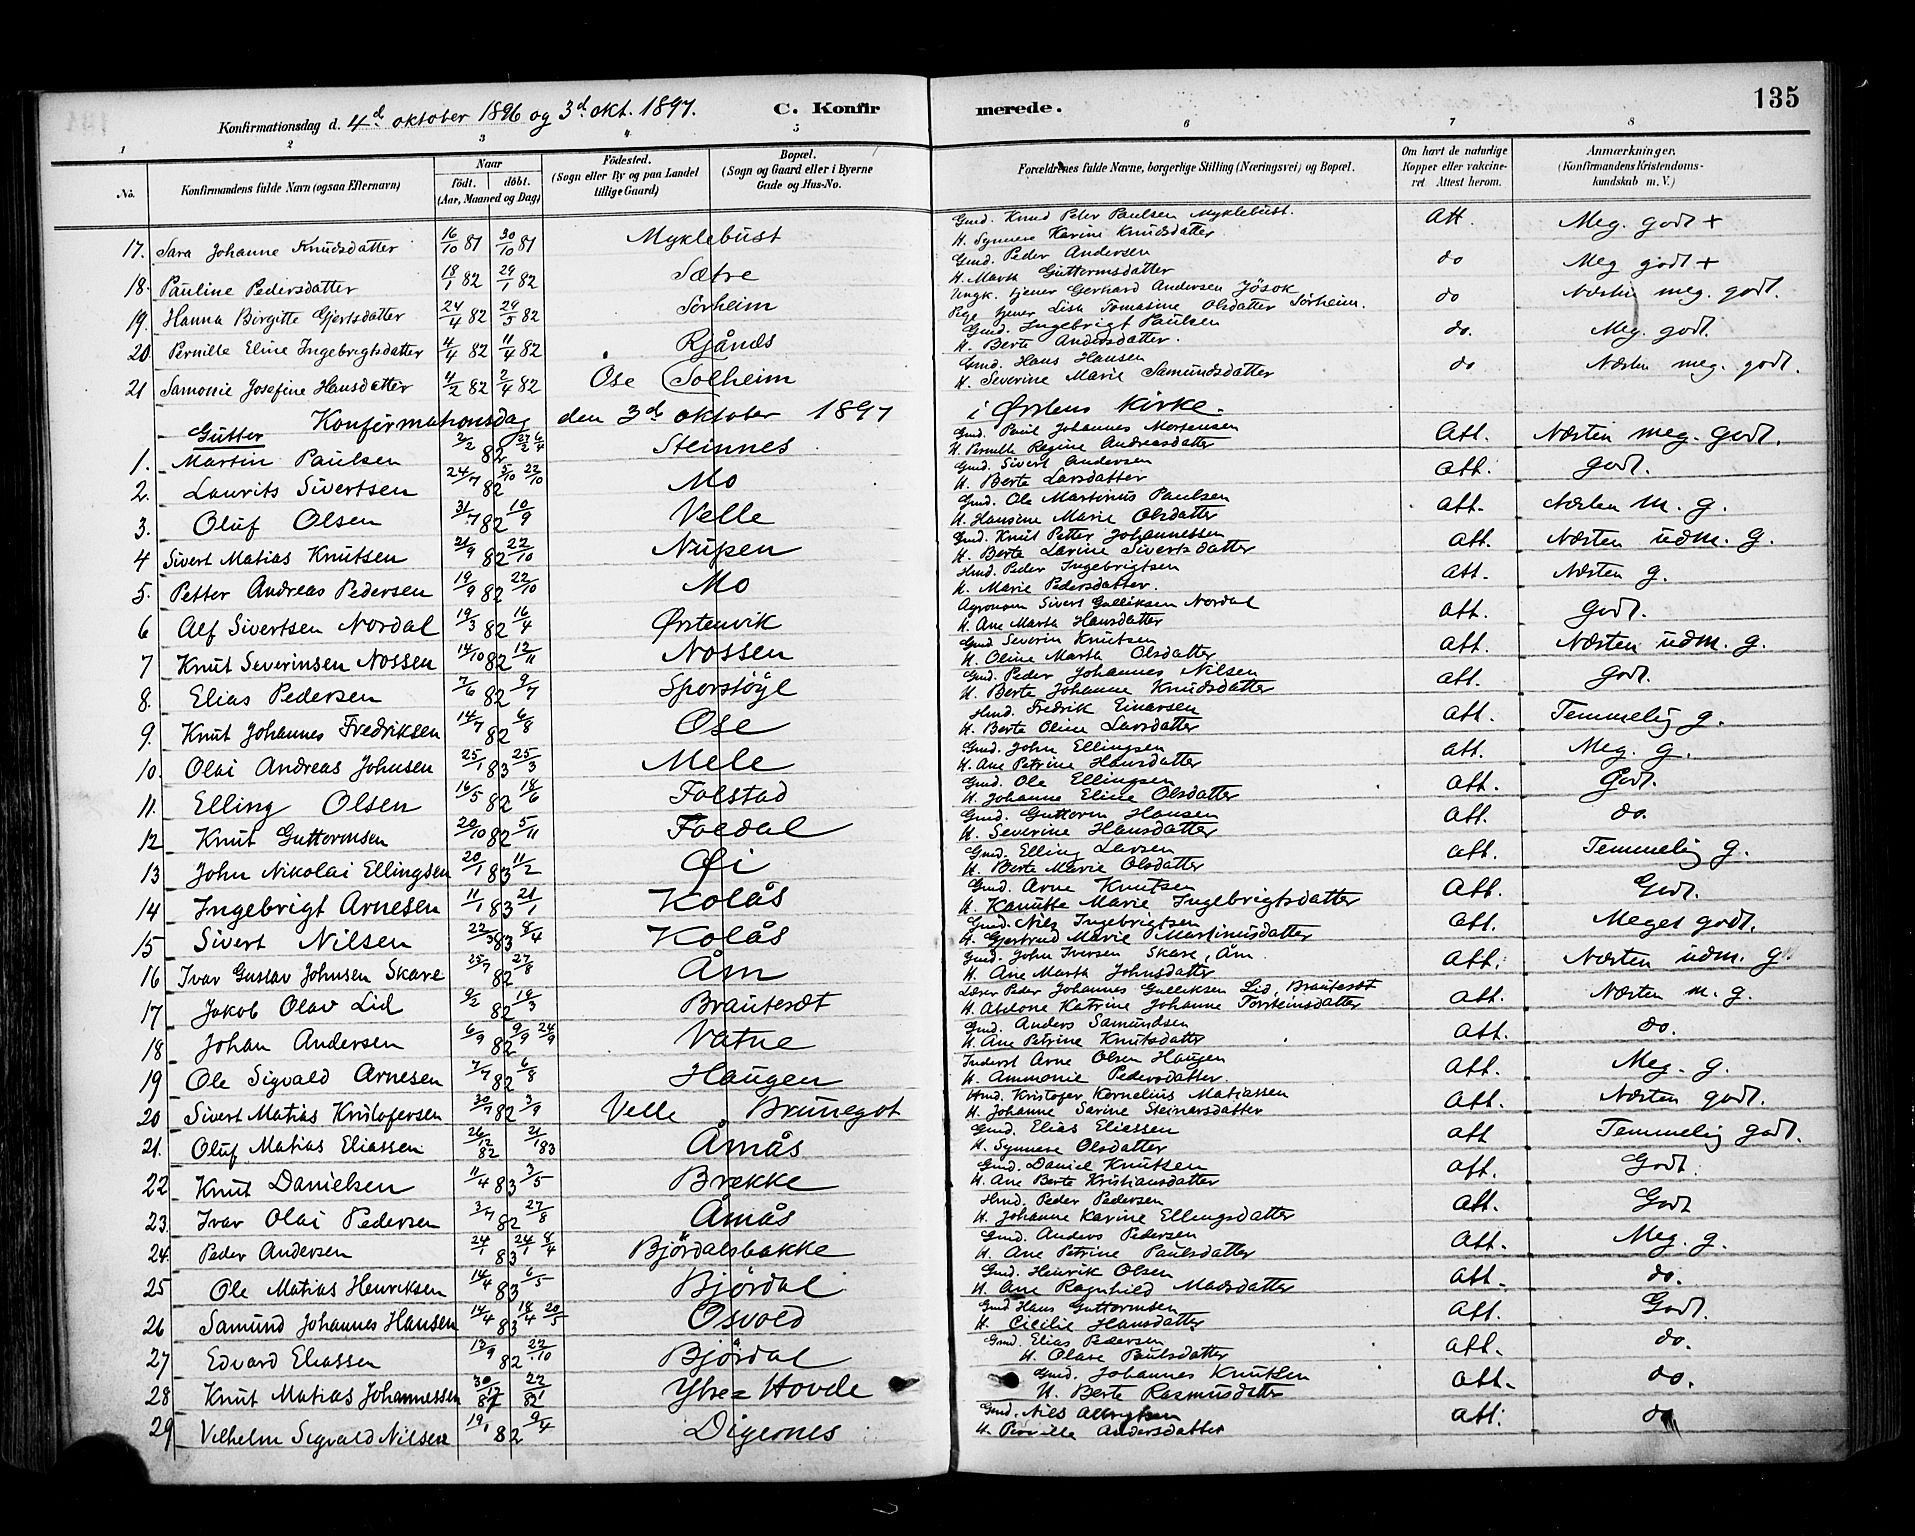 135
Konfirmationsdag d. 4de oktober 1896 og 3de okt. 1897. C. Konfirmerede.
1 2 3 4 5 6 7 8
No. Konfirmandens fulde Navn (ogsaa Efternavn) Naar født. døbt. (Aar, Maaned og Dag) Fødested. (Sogn eller By og paa Landet tillige Gaard) Bopæl. (Sogn og Gaard eller i Byerne Gade og Hus-No. Forældrenes fulde Navne, borgerlige Stilling (Næringsvei) og Bopæl. Om havt de naturlige Kopper eller vaccineret. Attest herom. Anmærkninger, (Konfirmandens Kristendomskundskab m. V.)
17. Sara Johanne Knudsdatter 16/10 81 30/10 81 Myklebust Gmd. Knud Peter Paulsen Myklebust. H. Synnøve Karine Knudsdatter Att. Meg. godt +
18. Pauline Pedersdatter 18/1 82 29/1 82 Sætre Gmd. Peder Andersen H. Marth Guttormsdatter do Meg godt +
19. Hanna Birgitte Gjertsdatter 24/4 82 29/5 82 Sørheim Ungk. tjener Gerhard Andersen Jøsok Pige tjener Lisa Tomasine Olsdatter Sørheim. do Næsten meg. godt.
20. Pernille Eline Ingebrigtsdatter 4/4 82 11/4 82 Rjånes Gmd. Ingebrigt Paulsen H. Berte Andersdatter. do. Meg. godt.
21 Samonie Josefine Hansdatter 4/2 82 2/4 82 Ose (Solheim Gmd. Hans Hansen H. Severine Marie Samundsdatter do Næsten meg. godt.
Konfirmationsdag den 3de oktober 1897 i Ørstens Kirke.
Gutter
1. Martin Paulsen 2/2 82 27/2 6/4 Steinnes Gmd. Paul Johannes Mortensen H. Pernille Regine Andreasdatter Att. Næsten meg. godt.
2. Laurits Sivertsen 24/7 82 5/10 22/10 Mo Gmd. Sivert Andersen H. Berte Larsdatter att. godt.
3. Oluf Olsen 31/7 82 10/9 Velle Gmd. Ole Martinus Paulsen H. Hansine Marie Olsdatter att. Næsten m. g.
4 Sivert Matias Knutsen 21/9 82 22/10 Nupen Gmd. Knut Petter Johannessen H. Berte Larine Sivertsdatter att. Næsten udm. g.
5. Petter Andreas Pedersen 19/9 82 22/10 Mo Hmd. Peder Ingebrigtsen H. Marie Pedersdatter. att. Næsten g.
6 Alf Sivertsen Nordal 19/3 82 16/4 Ørstenvik Agronom Sivert Gulliksen Nordal H. Ane Marth Hansdatter att. godt.
7 Knut Severinsen Nossen 14/10 82 12/11 Nossen Gmd Severin Knutsen H. Oline Marth Olsdatter att. Næsten udm. g.
8. Elias Pedersen 7/6 82 9/7 Sporstøyl Gmd. Peder Johannes Nilsen H. Berte Johanne Knudsdatter att. godt.
9. Knut Johannes Fredriksen 14/7 82 6/8 Ose Hmd. Fredrik Einarsen H. Berte Oline Larsdatter att. Temmelig g.
10. Olai Andreas Johnsen 25/1 83 25/3 Mele Gmd. John Ellingsen H. Ane Petrine Hansdatter att. Meg. g.
11. Elling Olsen 16/5 82 18/6 Folstad Gmd. Ole Ellingsen H. Johanne Eline Olsdatter att. Godt.
12 Knut Guttormsen 20/10 82 5/11 Foldal Gmd. Guttorm Hansen H. Severine Hansdatter att. do.
13 John Nikolai Ellingsen 20/1 83 11/2 Øi Gmd. Elling Larsen H. Berte Marie Olsdatter att. Temmelig g.
14 Ingebrigt Arnesen 11/1 83 21/1 Kolås Gmd. Arne Knutsen H. Kanutte Marie Ingebrigtsdatter att. Godt.
15 Sivert Nilsen 22/3 83 8/4 Kolås Gmd. Nils Ingebrigtsen H. Gjertrud Marie Martinusdatter att. Meget godt.
16 Ivar Gustav Johnsen Skare 25/7 82 27/8 Åm Gmd. John Iversen Skare, Åm. H. Ane Marth Johnsdatter att. Næsten udm. g
17 Jakob Olav Lid 9/2 82 19/3 Brautesæt Lærer Peder Johannes Gulliksen Lid, Brautesæt H. Abelone Katrine Johanne Torsteinsdatter att. Næsten m. g.
18 Johan Andersen 6/9 82 9/9 24/9 Vatne Gmd. Anders Samundsen H. Ane Petrine Knutsdatter att. do.
19 Ole Sigvald Arnesen 7/7 82 6/8 Haugen Inderst Arne Olsen Haugen H. Ammonie Pedersdatter. att. Meg. g.
20 Sivert Matias Kristofersen 30/7 82 3/9 Velle Brunegot Hmd. Kristofer Kornelius Matiassen H. Johanne Sarine Steinarsdatter att. Næsten godt.
21. Oluf Matias Eliassen 26/12 82 21/1 83 Åmås Gmd. Elias Eliassen H. Synnøve Olsdatter att Temmelig godt.
22 Knut Danielsen 11/4 83 3/5 Brekke Gmd. Daniel Knutsen H. Ane Berte Kristiansdatter att. Godt.
23. Ivar Olai Pedersen 3/7 82 27/8 Åmås Hmd. Peder Pedersen H. Johanne Karine Ellingsdatter att. Godt
24. Peder Andersen 24/1 83 24/1 8/4 Bjørdalsbakke Gmd. Anders Pedersen H. Ane Petrine Paulsdatter att. Meg. g.
25 Ole Matias Henriksen 14/4 83 6/5 Bjørdal Gmd. Henrik Olsen H. Ane Ragnhild Madsdatter att. do.
26 Samund Johannes Hansen 14/4 83 18/4 20/5 Osvold Gmd Hans Guttormsen H. Cicilie Hansdatter att. Godt.
27 Edvard Eliassen 13/9 82 22/10 Bjørdal Gmd. Elias Pedersen H. Olave Paulsdatter att. do.
28 Knut Matias Johannessen 30/12 81 22/1 82 Ytre=Hovde Gmd. Johannes Knutsen H. Berte Rasmusdatter att. do.
29 Vilhelm Sigvald Nilsen 19/1 82 9/4 Digernes Gmd. Nils Albrigtsen H. Pernille Andersdatter att. do